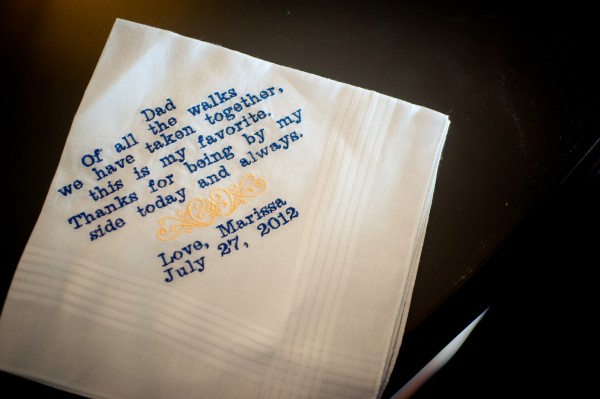 Dad
Of all the walks
we have taken together,
this is my favorite.
Thanks for being by my
side today and always.
Love, Marissa
July 27, 2012